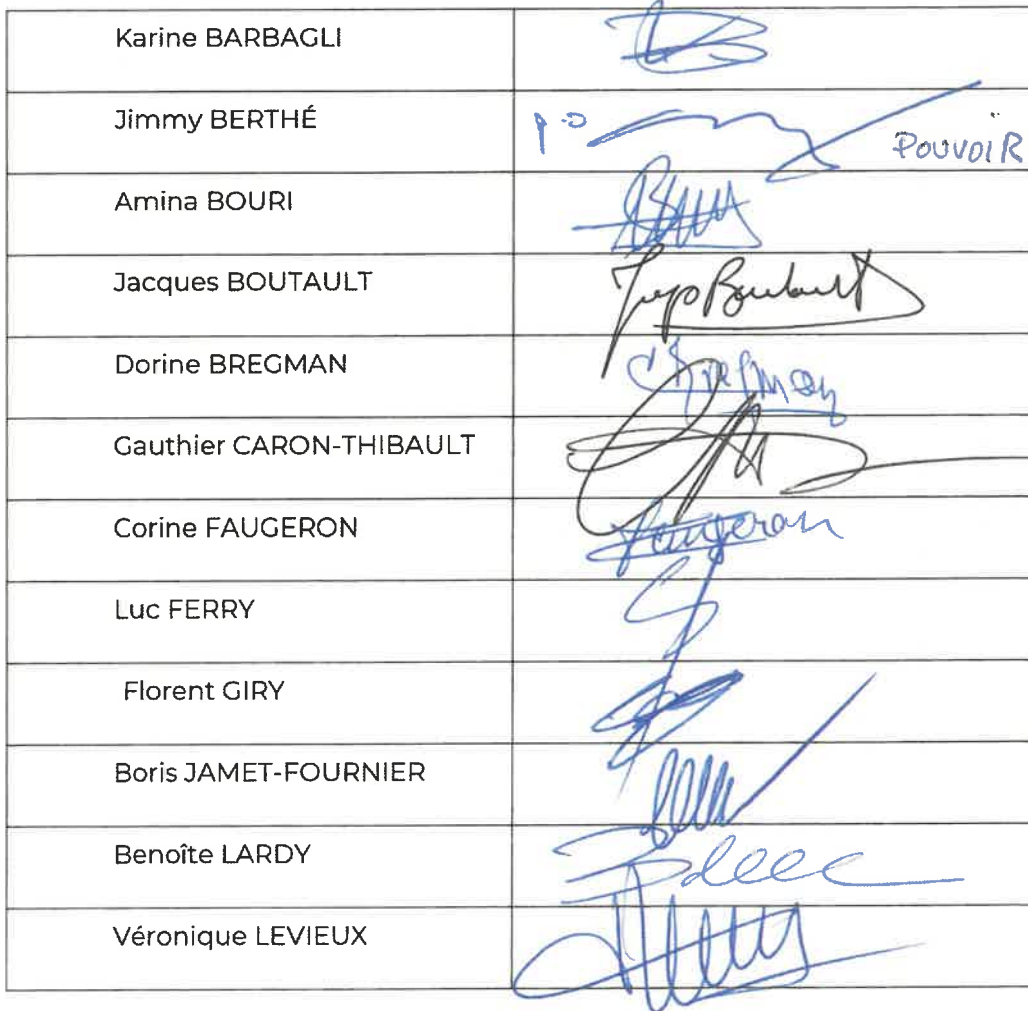 Karine BARBAGLI
Jimmy BERTHÉ p.o POUVOIR
Amina BOURI
Jacques BOUTAULT
Dorine BREGMAN Bregman
Gauthier CARON-THIBAULT
Corine FAUGERON Faugeron
Luc FERRY
Florent GIRY
Boris JAMET-FOURNIER
Benoîte LARDY
Véronique LEVIEUX